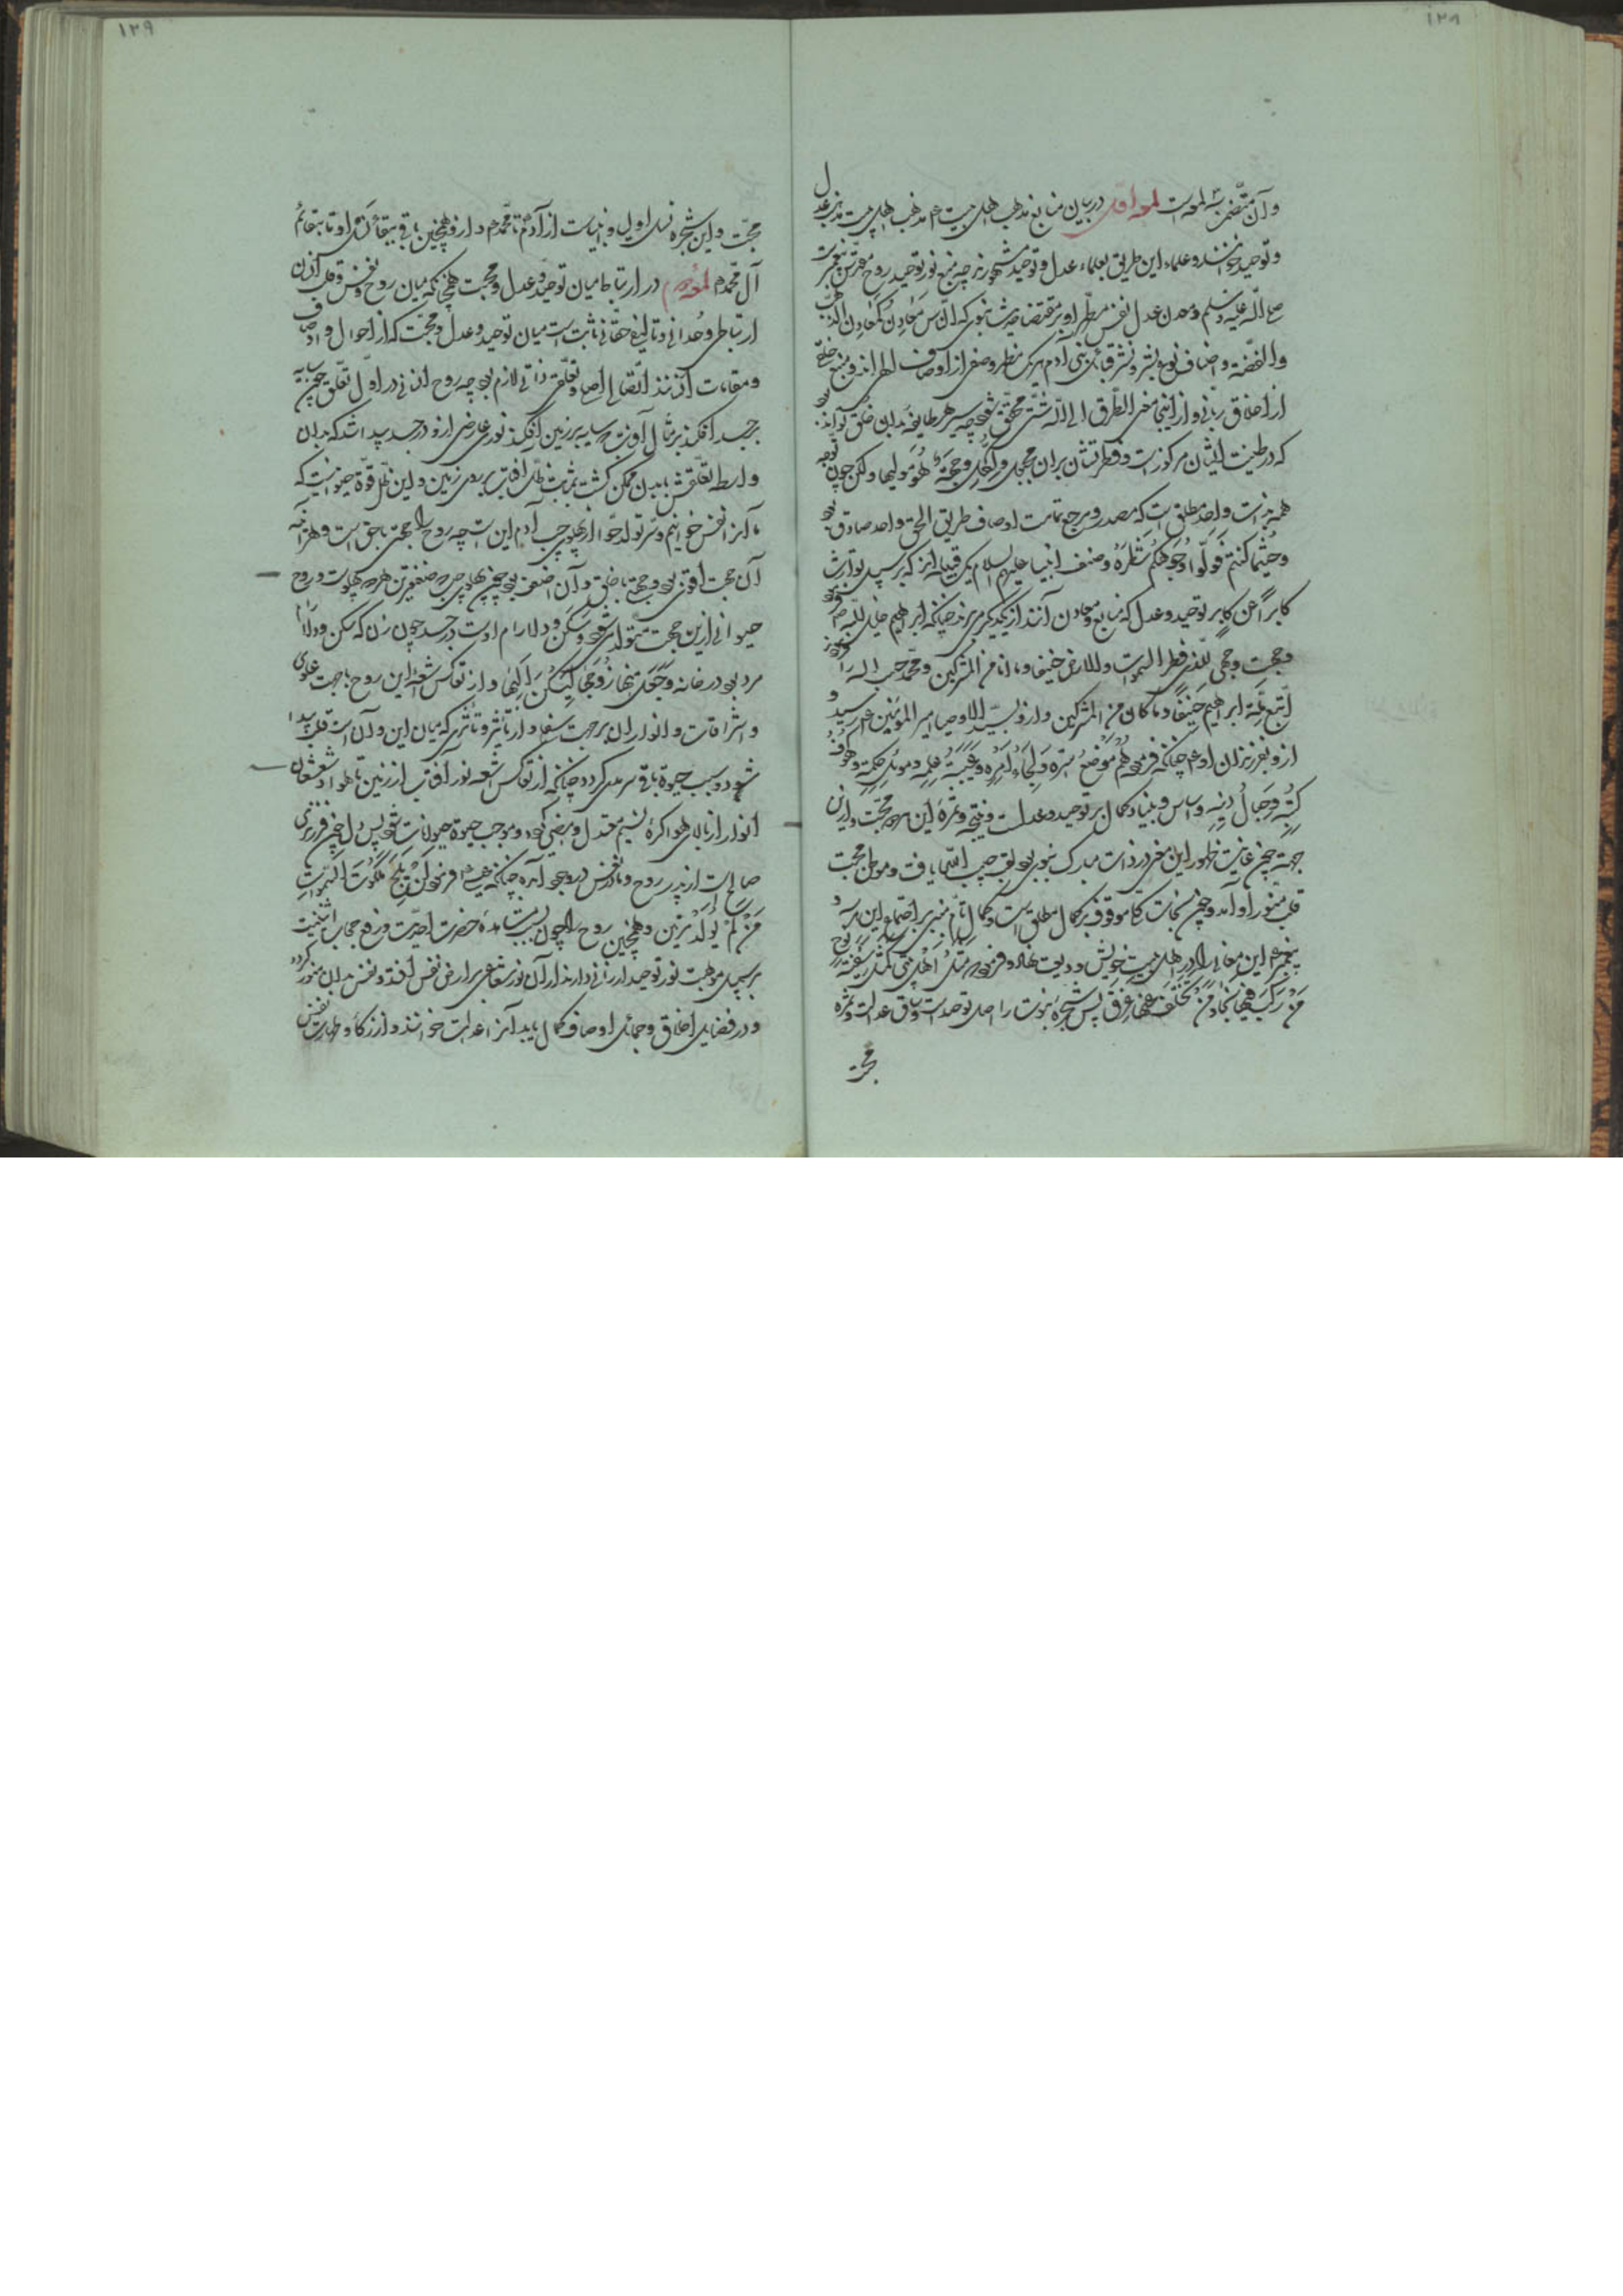 ١٢٨
و آن متضمن سه لمعه است لمعه اول در بیان منابع مذهب اهل بیت ع م مذهب اهل بیت مذهب عدل
و توحید خوانند و علماء این طریق بعلماء عدل و توحید مشهورند چه منبع نور توحید روح مقدس پیغمبرست
صلی الله علیه و سلم و معدن عدل نفس مطهر او بر مقتضاء حدیث نبوی که الناس معادن کمعادن الذهب
والفضة و اصناف نوع بشر و قبائل بنی آدم هر یک مظهر وصفی از اوصاف الهی اند و منبع خلقی
از اخلاق ربانی و از اینجا معنی الطرق الی الله شتی محقق شود چه سیر هر طایفه بدان خلق تواند بود
که در طینت ایشان مرکوزست و فطرتشان بران مجبول و لکل وجهة هو مولیها ولکن چون توجه
همه بذات واحد مطلق است که مصدر و مرجع تمامت اوصاف طریق الحق واحد صادق بود
وحیثما کنتم فولوا وجوهکم شطره و صنف انبیا علیهم السلام یک قبیله اند که بر سبیل توارث
کابرا عن کابر توحید و عدل که منابع و معادن آنند از یکدیگر میبرند چنانکه ابراهیم خلیل الله ص
وجهت وجهی للذی فطر السموات والارض حنیفا وما انا من المشرکین و محمد حبیب الله را
اتبع ملة ابراهیم حنیفا وما کان من المشرکین و ازو بسید الاوصیا امیر المؤمنین ع م رسید و
ازو بفرزندان او ع م چنانکه فرمود هم موضع سره ولجاء امره وعیبة علمه وموئل حکمه وکهوف
کتبه وجبال دینه و اساس و بنیاد کمال بر توحید و عدلست و نتیجه و ثمره این هر دو محبت و ازین
جهة چون غایت ظهور این معنی در ذات مبارک نبوی بود لقب حبیب اللهی یافت و موطن محبت
قلب منور او آمد و چون نجات که موقوف بر کمال مطلق است و کمال تام مبنی بر اجتماع این هر سه
پیغمبر ع م این معانی را در اهل بیت خویش ودیعت نهاد و فرمود مثل اهل بیتی کمثل سفینة نوح
من رکب فیها نجا ومن تخلف عنها غرق پس شجره نبوت را اصل توحید است و ساق عدالت و ثمره
محبت
١٢٩
محبت و این شجره نسل اولیا و انبیاست از آدم تا محمد م و ازو همچنین باقی ببقاء نسل او تا بقائم
آل محمد م لمعه دوم در ارتباط میان توحید و عدل و محبت همچنانکه میان روح و نفس و قلب انسان
ارتباطی وحدانی و تالیفی حقانی ثابت است میان توحید و عدل و محبت که از احوال و اوصاف
و مقامات آنند اتصالی اصلی و تعلقی ذاتی لازم بود چه روح انسانی در اول تعلق چون سایه
بر جسد افکند بر مثال آفتاب که سایه بر زمین افکند نوری عارضی ازو در جسد پیدا شد که بدان
واسطه تعلقش ببدن ممکن گشت بمثابت ظل آفتاب بر روی زمین و این ظل قوة حیوانیست که
ما آنرا نفس خوانیم و سر تولد حوا از پهلوی چپ آدم این است چه روح را جهتی باحق است و هر آینه
آن جهت اقوی بود و جهتی با خلق و آن اضعف بود چون پهلوی چپ که ضعیفترین هر دو پهلوست و روح
حیوانی ازین جهت متولد میشود و سکن و دلارام اوست در جسد چون زن که سکن و دلارام
مرد بود در خانه وجعل منها زوجها لیسکن الیها و از تعاکس اشعه این روح با جهت علوی
و اشراقات و انوار ان بر جهت سفلی و از تاثیر و تاثری که میان این و آن است قلب پیدا
شود و سبب حیوة باقی سرمدی گردد چنانکه از تعاکس اشعه نور آفتاب از زمین با هوا و شعشعان
انوار از بالای هوا کره نسیم معتدل و مضیء گردد و موجب حیوة حیوانات شود پس دل چون فرزندی
صالح است از پدر روح و مادر نفس در وجود آمده چنانکه عیسی ع فرمود لن یلج ملکوت السموات
من لم یولد مرتین و همچنین روح را چون بسبب مشاهده حضرت احدیت و رفع حجاب اثنینیت
بر سبیل موهبت نور توحید ارزانی دارند از آن نور شعاعی بر ارض نفس افتد و نفس بدان منور گردد
و در فضایل اخلاق و جمائل اوصاف کمال یابد آنرا عدالت خوانند و از زکا و طهارت نفس